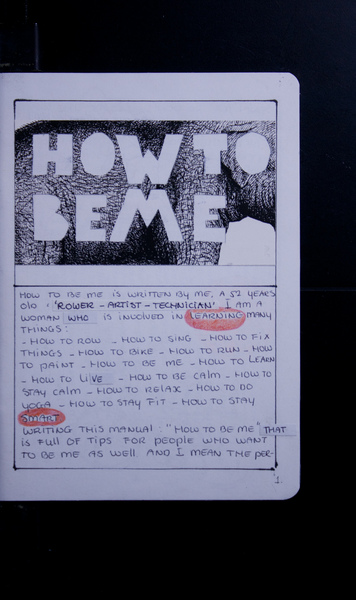 HOW TO
BE ME
HOW TO BE ME IS WRITTEN BY ME, A 52 YEARS
OLD "ROWER - ARTIST - TECHNICIAN". I AM A
WOMAN WHO IS INVOLVED IN LEARNING MANY
THINGS:
- HOW TO ROW - HOW TO SING - HOW TO FIX
THINGS - HOW TO BIKE - HOW TO RUN - HOW
TO PAINT - HOW TO BE ME - HOW TO LEARN
- HOW TO LIVE - HOW TO BE CALM - HOW TO
STAY CALM - HOW TO RELAX - HOW TO DO
YOGA - HOW TO STAY FIT - HOW TO STAY
SMART
WRITING THIS MANUAL: "HOW TO BE ME" THAT
IS FULL OF TIPS FOR PEOPLE WHO WANT
TO BE ME AS WELL. AND I MEAN THE PER-
1.